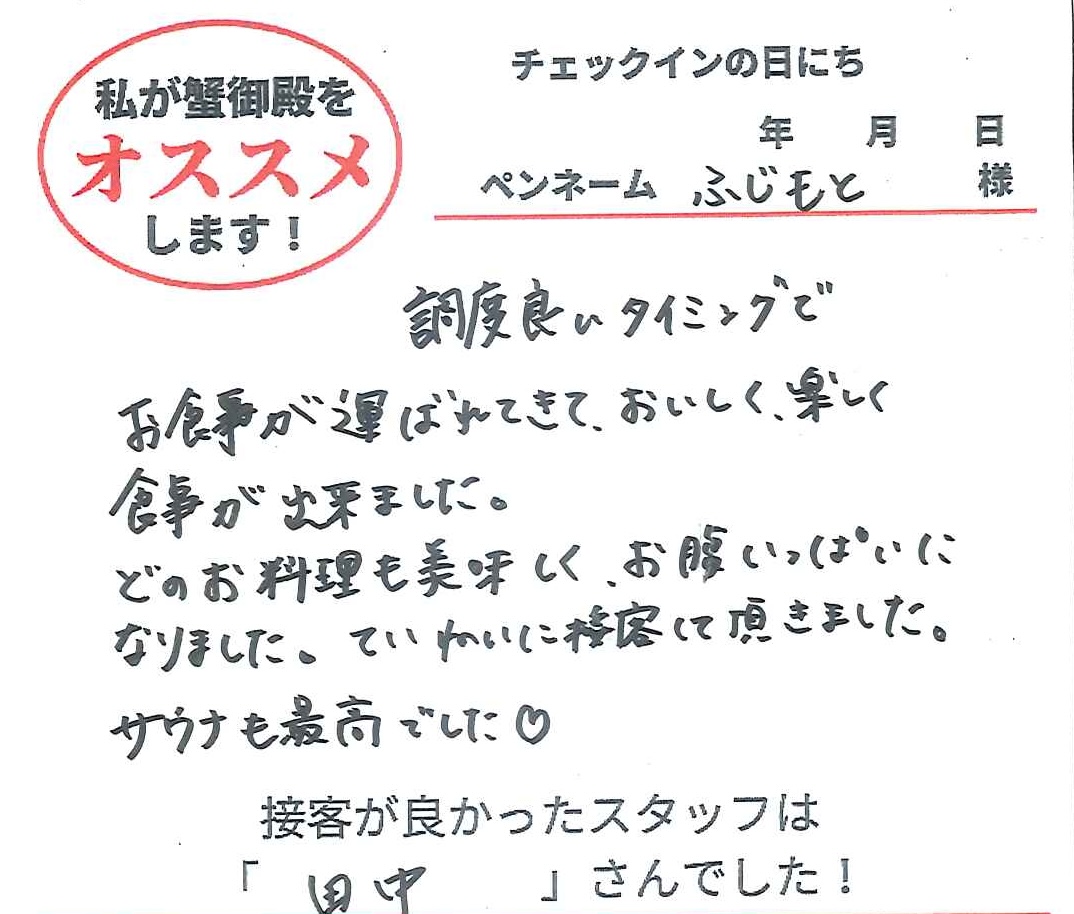 私が蟹御殿を
オススメ
します！
チェックインの日にち
年 月 日
ペンネーム ふじもと 様
調度良いタイミングで
お食事が運ばれてきて、おいしく、楽しく
食事が出来ました。
どのお料理も美味しく、お腹いっぱいに
なりました。ていねいに接客して頂きました。
サウナも最高でした♡
接客が良かったスタッフは
「 田中 」さんでした！